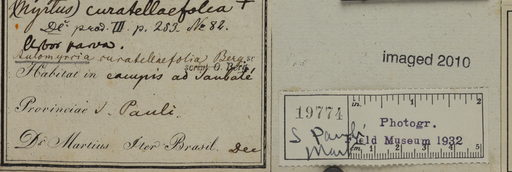 (Myrtus) curatellaefolia +
Dc prod. III. p. 283. No 82.
Arbor parva.
Aulomyrcia curatellaefolia Berg. sc
scrips. O. Berg.
Habitat in campis ad Taubaté
Provinciae S. Pauli.
Dr. Martius Iter Brasil. Dec
imaged 2010
19774
in. 1 2
Photogr.
Field Museum 1932
S Paulo
Mart
cm 1 2 3 4 5